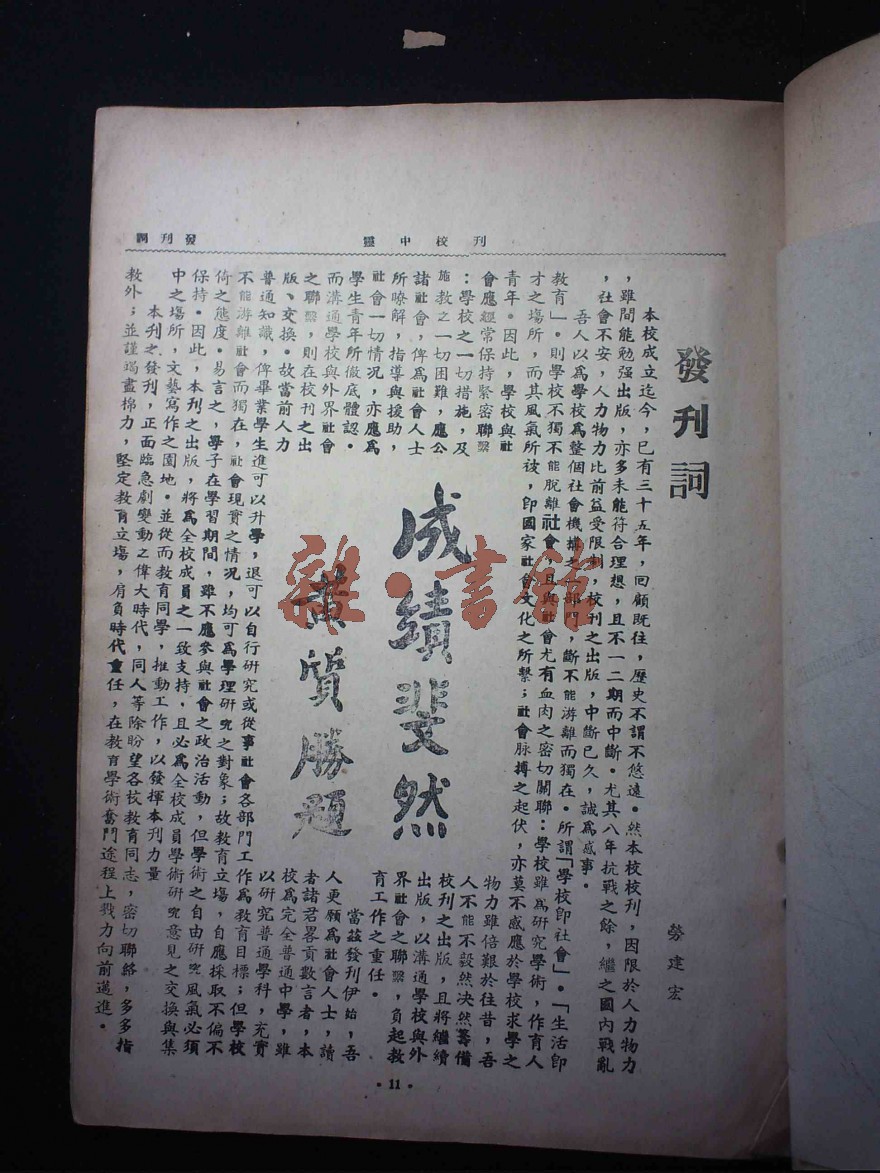 刊校中靈
發刊詞
發刊詞
勞建宏
本校成立迄今，已有三十五年，回顧既往，歷史不謂不悠遠。然本校校刊，因限於人力物力
，雖間能勉强出版，亦多未能符合理想，且不一二期而中斷。尤其八年抗戰之餘，繼之國內戰亂
，社會不安，人力物力比前益受限制，校刊之出版，中斷已久，誠爲感事。
吾人以爲學校爲整個社會機構之一部門，斷不能游離而獨在。所謂「學校卽社會」。「生活卽
教育」。則學校不獨不能脫離社會，且與社會尤有血肉之密切關聯：學校雖爲研究學術，作育人
才之場所，而其風氣所被，卽國家社會文化之所繫；社會脉搏之起伏，亦莫不感應於學校求學之
青年。因此，學校與社
會應經常保持緊密聯繫
：學校之一切措施，及
施教之一切困難，應公
諸社會，俾爲社會人士
所暸解，指導與援助，
社會一切情况，亦應爲
學生青年所徹底體認。
而溝通學校與外界社會
之聯繫，則在校刊之出
版、交換。故當前人力
物力雖倍艱於往昔，吾
人不能不毅然決然籌備
校刊之出版，且將繼續
出版，以溝通學校與外
界社會之聯繫，負起教
育工作之重任。
當茲發刊伊始，吾
人更願爲社會人士，讀
者諸君畧貢數言者，本
校爲完全普通中學，雖
以研究普通學科，充實
普通知識，俾畢業學生進可以升學，退可以自行研究或從事社會各部門工作爲教育目標；但學校
不能游離社會而獨在，社會現實之情况，均可爲學理研究之對象；故教育立場，自應採取不偏不
倚之態度。易言之，學子在學習期間，雖不應參與社會之政治活動，但學術之自由研究風氣必須
保持。因此，本刊之出版，將爲全校成員之一致支持，且必爲全校成員學術研究意見之交換與集
中之場所，文藝寫作之園地。並從而教育同學，推動工作，以發揮本刊力量
本刊之發刊，正面臨急劇變動之偉大時代，同人等除盼望各校教育同志，密切聯絡，多多指
教外；並謹竭盡棉力，堅定教育立場，肩負時代重任，在教育學術奮鬥途程上戮力向前邁進。
成績斐然
黃質勝題
·11·
雜·書館